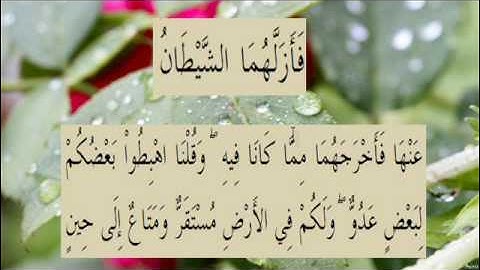 فَأَزَلَّهُمَا الشَّيْطَانُ
عَنْهَا فَأَخْرَجَهُمَا مِمَّا كَانَا فِيهِ ۖ وَقُلْنَا اهْبِطُواْ بَعْضُكُمْ
لِبَعْضٍ عَدُوٌّ ۖ وَلَكُمْ فِي الأَرْضِ مُسْتَقَرٌّ وَمَتَاعٌ إِلَى حِينٍ